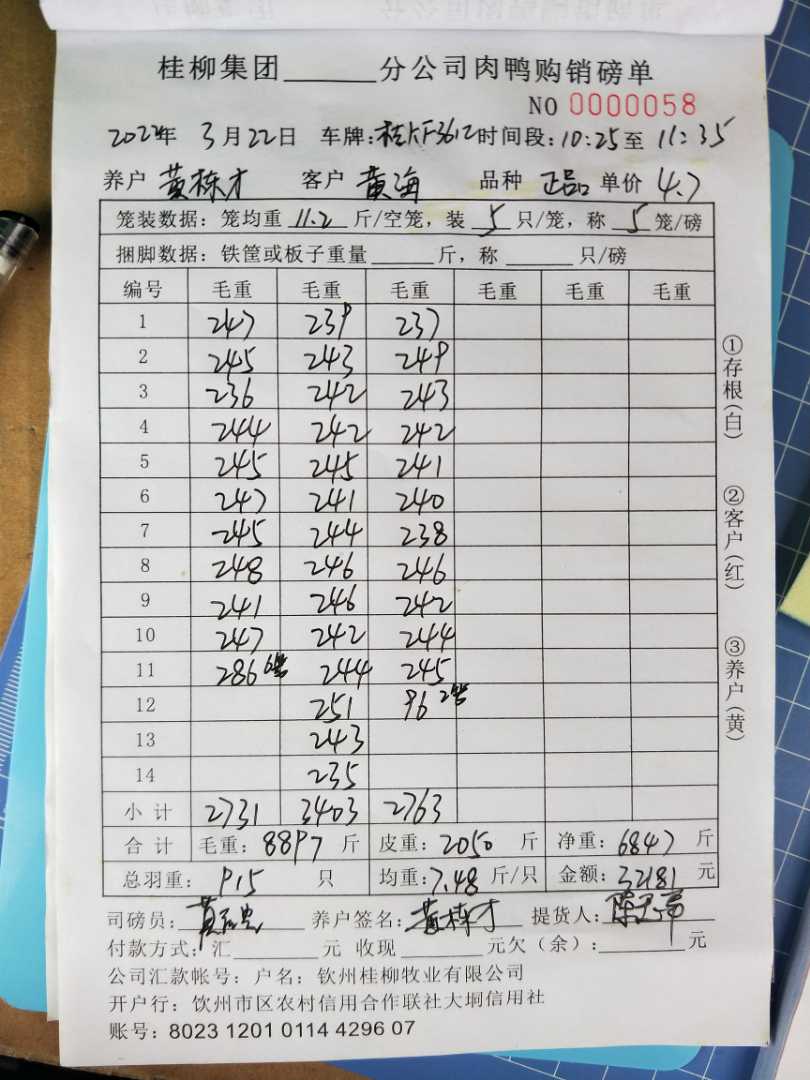 桂柳集团______分公司肉鸭购销磅单
NO 0000058
2022年 3月22日 车牌:桂KF3612 时间段:10:25至 11:35
养户 黄栋才 客户 黄海 品种 正品 单价 4.7
笼装数据:笼均重 11.2 斤/空笼,装 5 只/笼,称 5 笼/磅
捆脚数据:铁筐或板子重量______斤,称______只/磅
编号 毛重 毛重 毛重 毛重 毛重 毛重
1 247 239 237
2 245 243 249
3 236 242 243
4 244 242 242
5 245 245 241
6 247 241 240
7 245 244 238
8 248 246 246
9 241 246 242
10 247 242 244
11 286 6笼 244 245
12 251 96 2笼
13 243
14 235
小计 2731 3403 2763
合计 毛重:8897 斤 皮重:2050 斤 净重:6847 斤
总羽重: 915 只 均重:7.48 斤/只 金额:32181 元
司磅员: 养户签名:黄栋才 提货人:
付款方式:汇______元 收现______元欠(余):______元
公司汇款帐号:户名:钦州桂柳牧业有限公司
开户行:饮州市区农村信用合作联社大垌信用社
账号:8023 1201 0114 4296 07
①存根(白)
②客户(红)
③养户(黄)